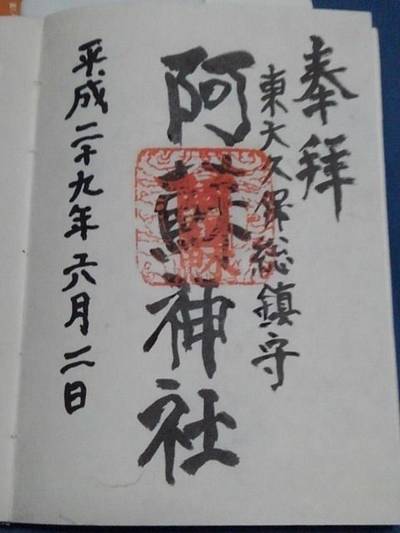 奉拝
東大久保総鎮守
阿蘇神社
平成二十九年六月二日